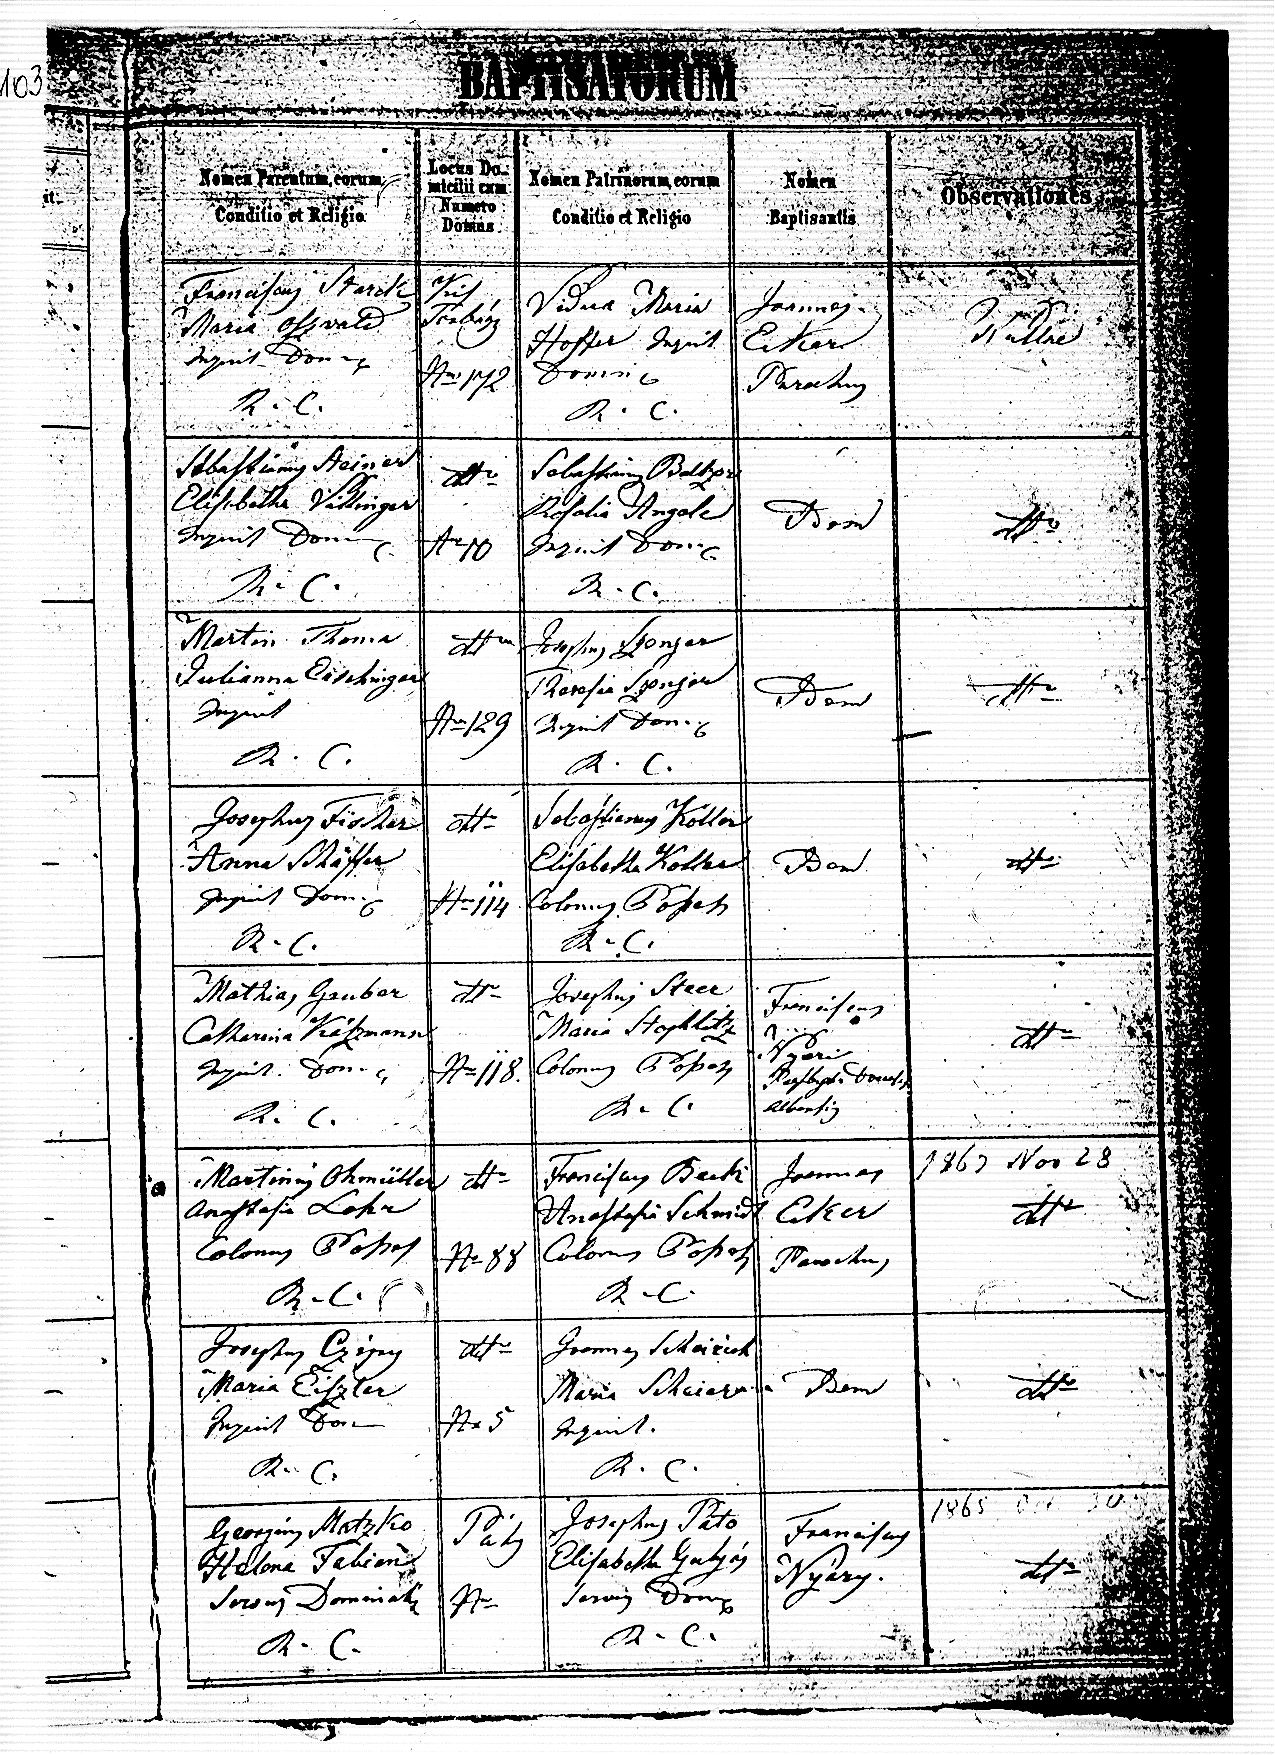 103
BAPTISATORUM
Nomen Parentum, eorum
Conditio et Religio
Locus Do-
micilii cum
Numero
Domus
Nomen Patrinorum, eorum
Conditio et Religio
Nomen
Baptisantis
Observationes
Franciscus Starck
Maria Oszvald
Inquil Dom
R. C.
Kis
Torbágy
Nro 172
Vidua Maria
Hoffer Inquil
Domin
R. C.
Joannes
Eker
Parochus
Nullae
Sebastianus Steiner
Elisabetha Villinger
Inquil Dom
R. C.
dtto
Nro 10
Sebastianus
Rosalia Angele
Inquil Dom
R. C.
Idem
dtto
Martin Thoma
Julianna Eischinger
Inquil
R. C.
dtto
Nro 129
Josephus Spenger
Theresia Spenger
Inquil Dom
R. C.
Idem
dtto
Josephus Fischer
Anna Schäffer
Inquil Dom
R. C.
dtto
Nro 114
Sebastianus Koller
Elisabetha Koller
Colonus Posses
R. C.
Idem
dtto
Mathias Gruber
Catharina Kätzmann
Inquil. Dom
R. C.
dtto
Nro 118.
Josephus Steer
Maria
Colonus Posses
R. C.
Franciscus
Nyári
dtto
Martinus Ohmüller
Anastasia Lohr
Colonus Posses
R. C.
dtto
Nro 88
Franciscus Beck
Anastasia Schmidt
Colonus Posses
R. C.
Joannes
Eker
Parochus
Nov 28
dtto
Josephus
Maria Eiszler
Inquil Dom
R. C.
dtto
Nro 5
Joannes
Maria
Inquil.
R. C.
Idem
dtto
Georgius Matzko
Helena Fabian
Servus Dominalis
R. C.
Páty
Nro
Josephus Pato
Elisabetha Gulyás
Servus Dom
R. C.
Franciscus
Nyáry.
1865 Oct 30
dtto